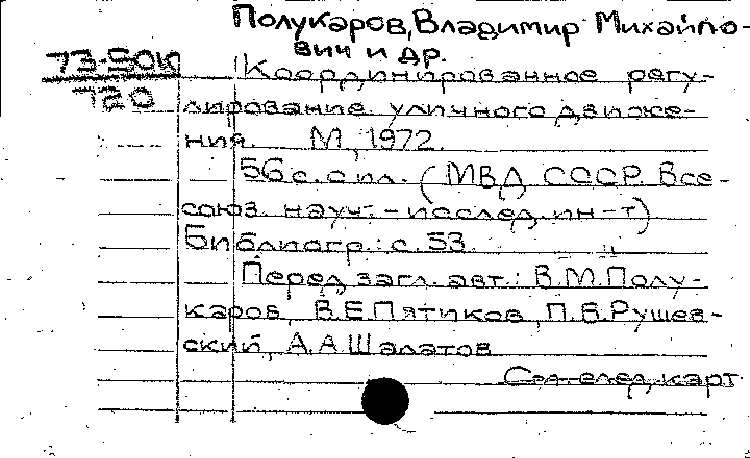 Полукаров, Владимир Михайло-
вич и др.
73-50К
720
Координированное регу-
лирование уличного движе-
ния. М., 1972.
56 с. с ил. (МВД СССР. Все-
союз. науч.-исслед. ин-т)
Библиогр.: с. 53.
Перед загл. авт.: В.М. Полу-
каров, В.Е. Пятиков, П.Б. Рушев-
ский, А.А. Шалатов
См. след. карт